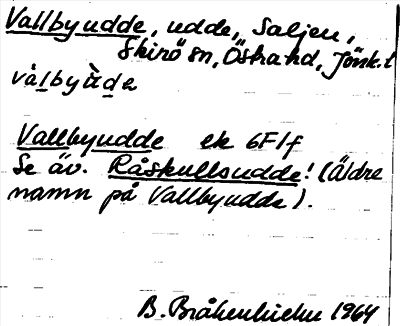 Vallbyudde, udde, Saljen,
Skirö sn, Östra hd, Jönk. l
vålbyùde
Vallbyudde ek 6F1f
Se äv. Råskullsudde! (Äldre
namn på Vallbyudde).
B. 1964